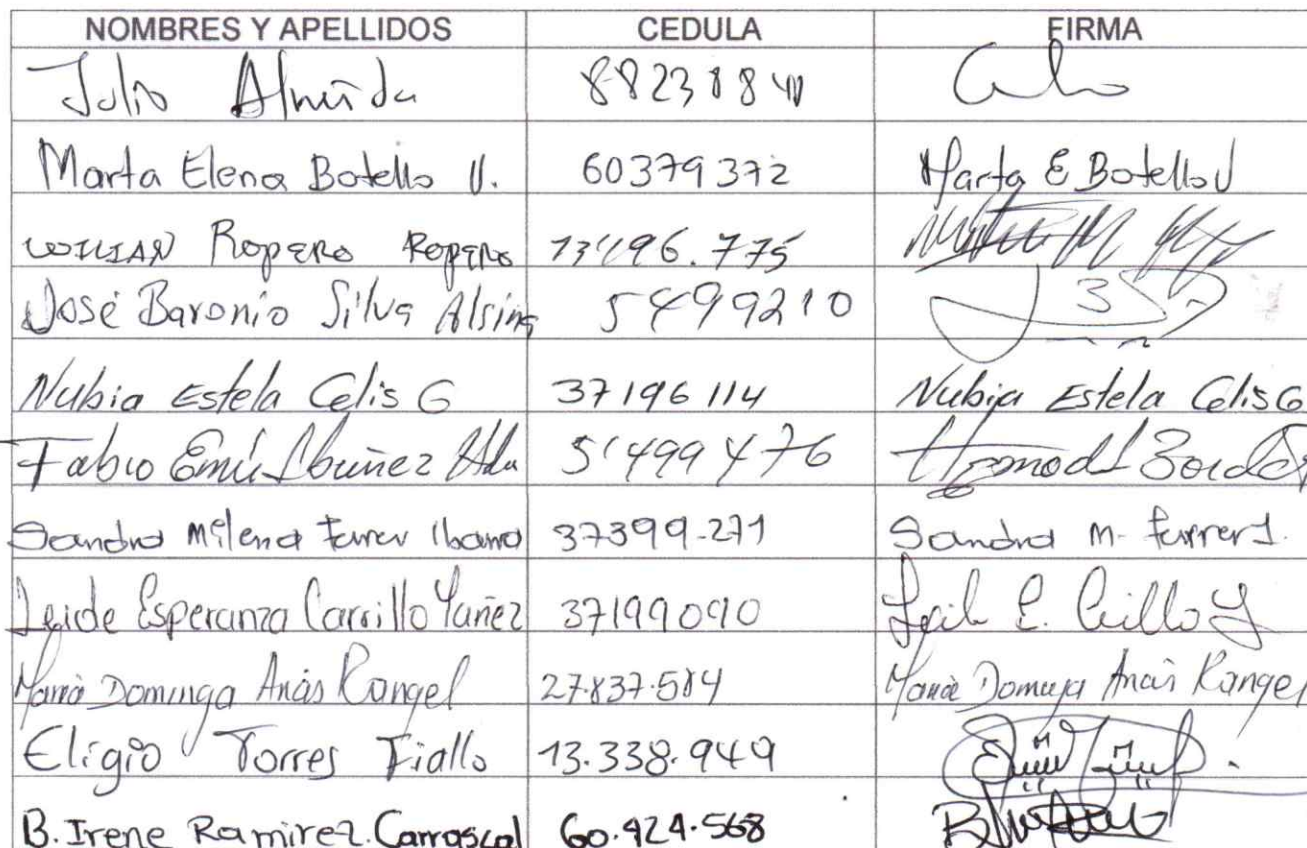 NOMBRES Y APELLIDOS CEDULA FIRMA
Julio Almeida 88238841
Marta Elena Botello V. 60379372 Marta E Botello V
WILLIAN Ropero Ropero 13'196.775
José Baronio Silva Alsina 5499210
Nubia Estela Celis G 37196114 Nubia Estela Celis G
Fabio Emiro Ibañez 5'499476
Sandra Milena Ferrer Ibarra 37399-271 Sandra M- Ferrer I.
Leide Esperanza Carrillo Yañez 37199090
Maria Dominga Arias Rangel 27.837.584 Maria Dominga Arias Rangel
Eligio Torres Fiallo 13.338.949
B. Irene Ramirez Carrascal 60.424.568